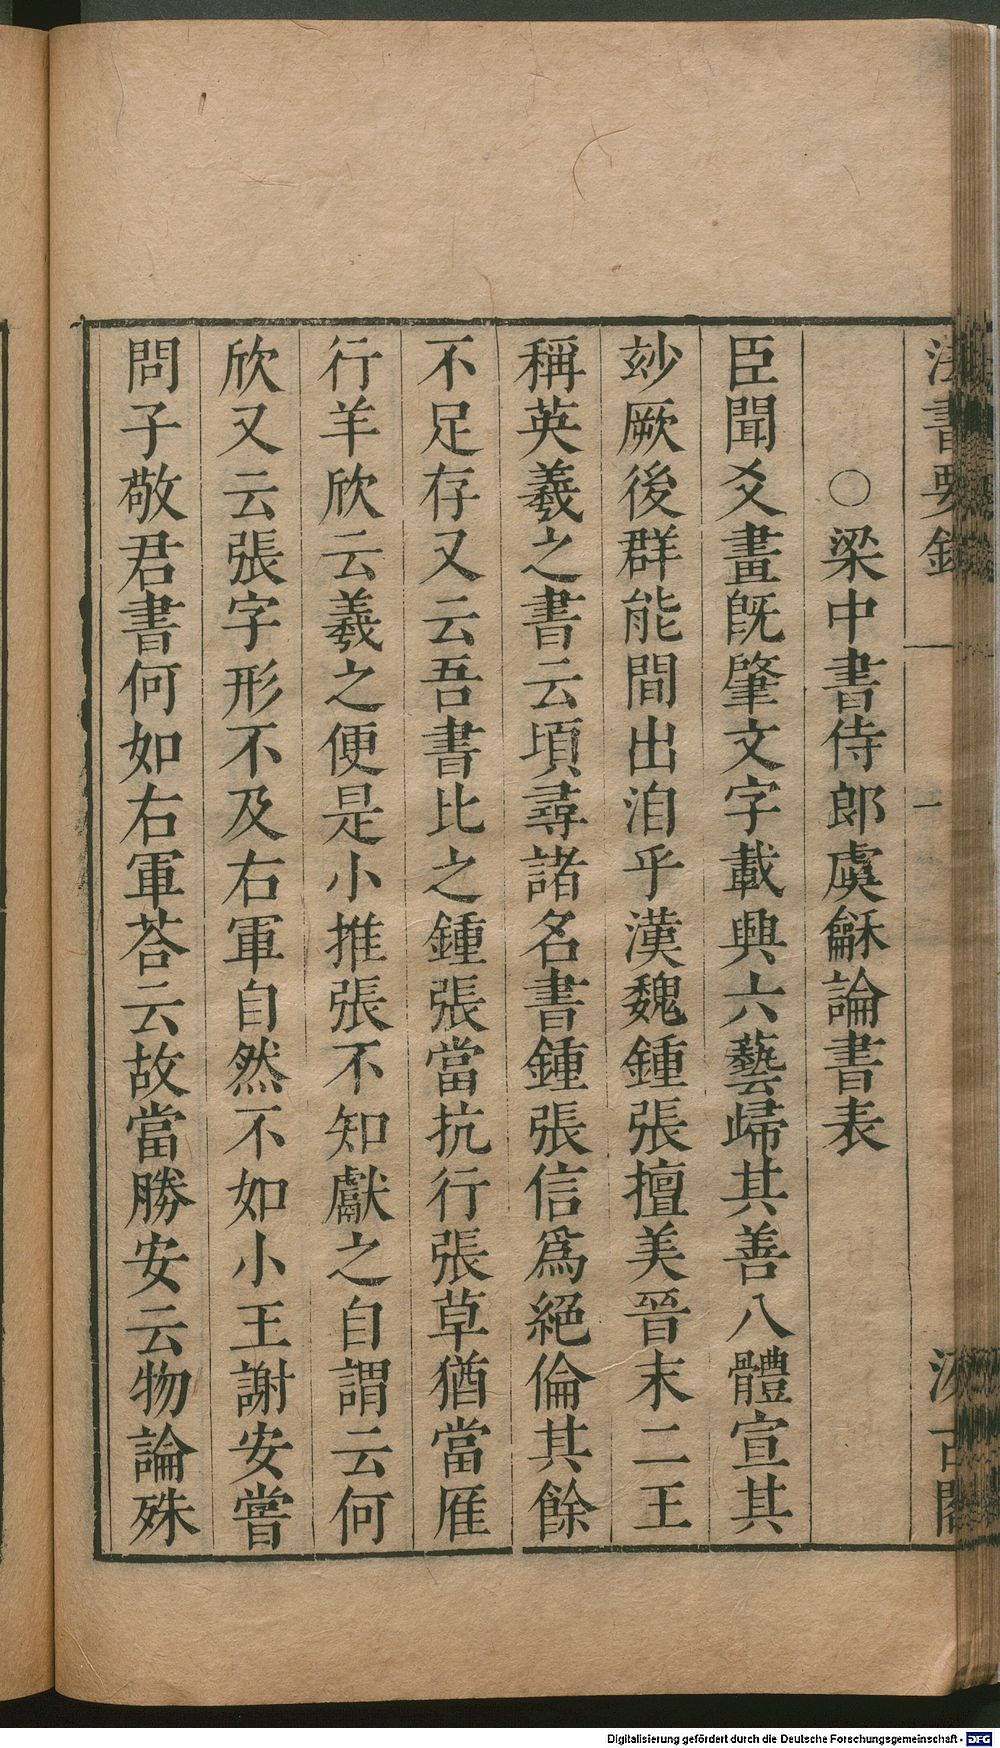 法書要録 一 一 汲古閣
○梁中書侍郎虞龢論書表
臣聞爻畫旣肇文字載興六藝歸其善八體宣其
玅厥後群能間出洎乎漢魏鍾張擅美晉末二王
稱英羲之書云頃尋諸名書鍾張信爲絕倫其餘
不足存又云吾書比之鍾張當抗行張草猶當鴈
行羊欣云羲之便是小推張不知獻之自謂云何
欣又云張字形不及右軍自然不如小王謝安嘗
問子敬君書何如右軍荅云故當勝安云物論殊
Digitalisierung gefördert durch die Deutsche Forschungsgemeinschaft - DFG